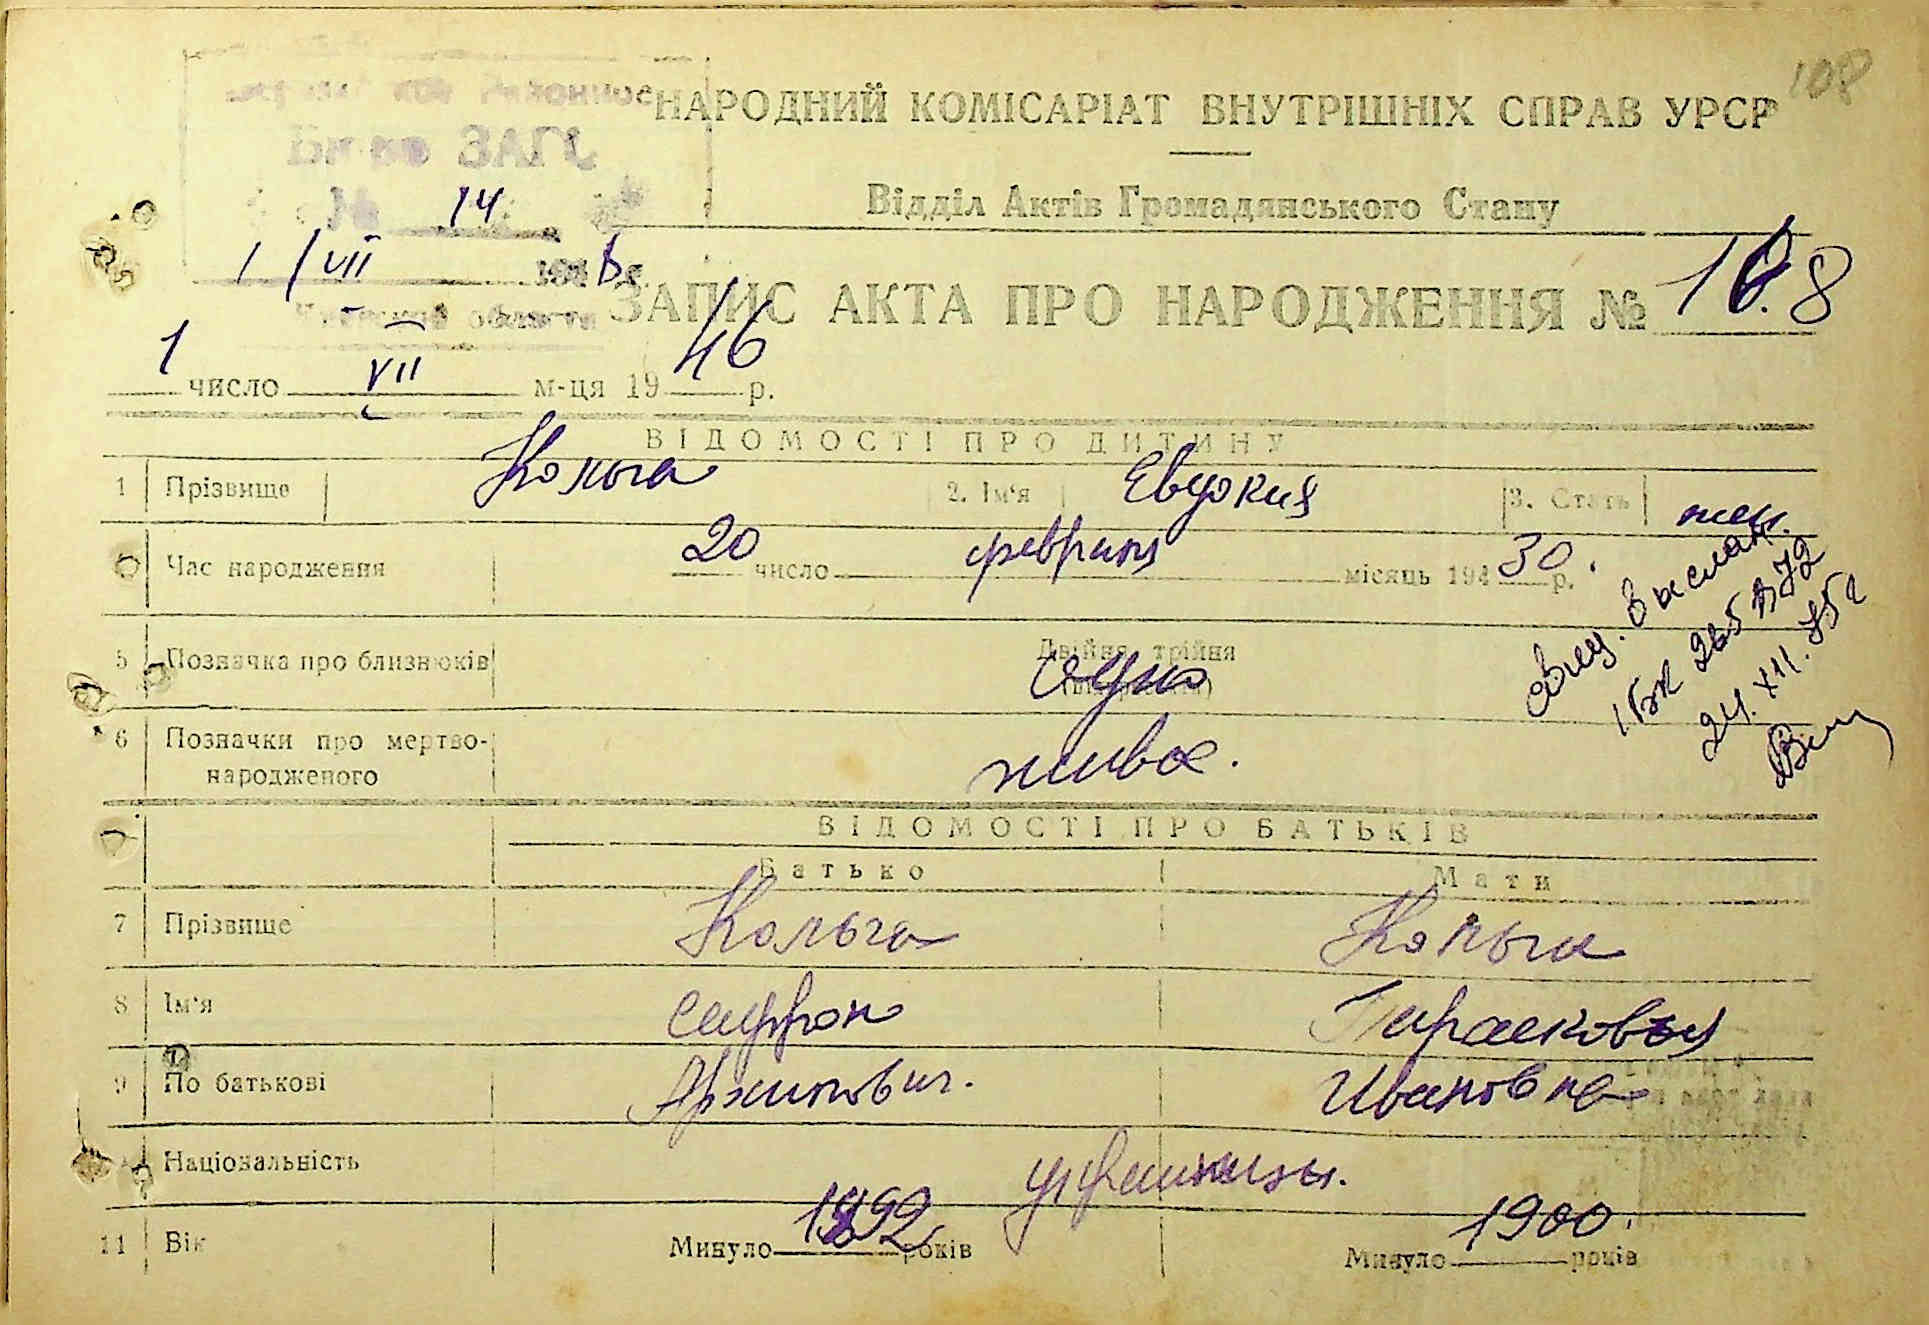 108
НАРОДНИЙ КОМІСАРІАТ ВНУТРІШНІХ СПРАВ УРСР
ЗАГС
14
Відділ Актів Громадянського Стану
1/VII
области
ЗАПИС АКТА ПРО НАРОДЖЕННЯ № 108
1 число VII м-ця 1946 р.
ВІДОМОСТІ ПРО ДИТИНУ
1 Прізвище Кольга 2. Ім'я Евдокия 3. Стать жен.
Час народження 20 число февраля місяць 194 30 р.
свид. выслан.
265872
24.XII.85г
5 Позначка про близнюків Двійня, трійня
одно
6 Позначки про мертво-
народженого живое.
ВІДОМОСТІ ПРО БАТЬКІВ
Батько Мати
7 Прізвище Кольга Кольга
8 Ім'я Сафрон Парасковья
9 По батькові Архипович. Ивановна
Національність украинцы.
11 Вік Минуло 1892 років Минуло 1900. років